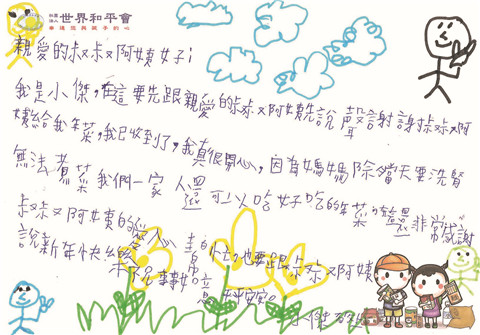 財團法人 世界和平會
親愛的叔叔阿姨妳好:
我是小傑,在這要先跟親愛的叔叔阿姨先說聲謝謝叔叔阿
姨給我年菜,我已收到了,我真很開心,因為媽媽除當天要洗腎
無法煮菜我們一家人還可以吃好吃的年菜 非常感謝
叔叔阿姨的愛心 也要跟叔叔阿姨
說新年快 事 平安
小傑